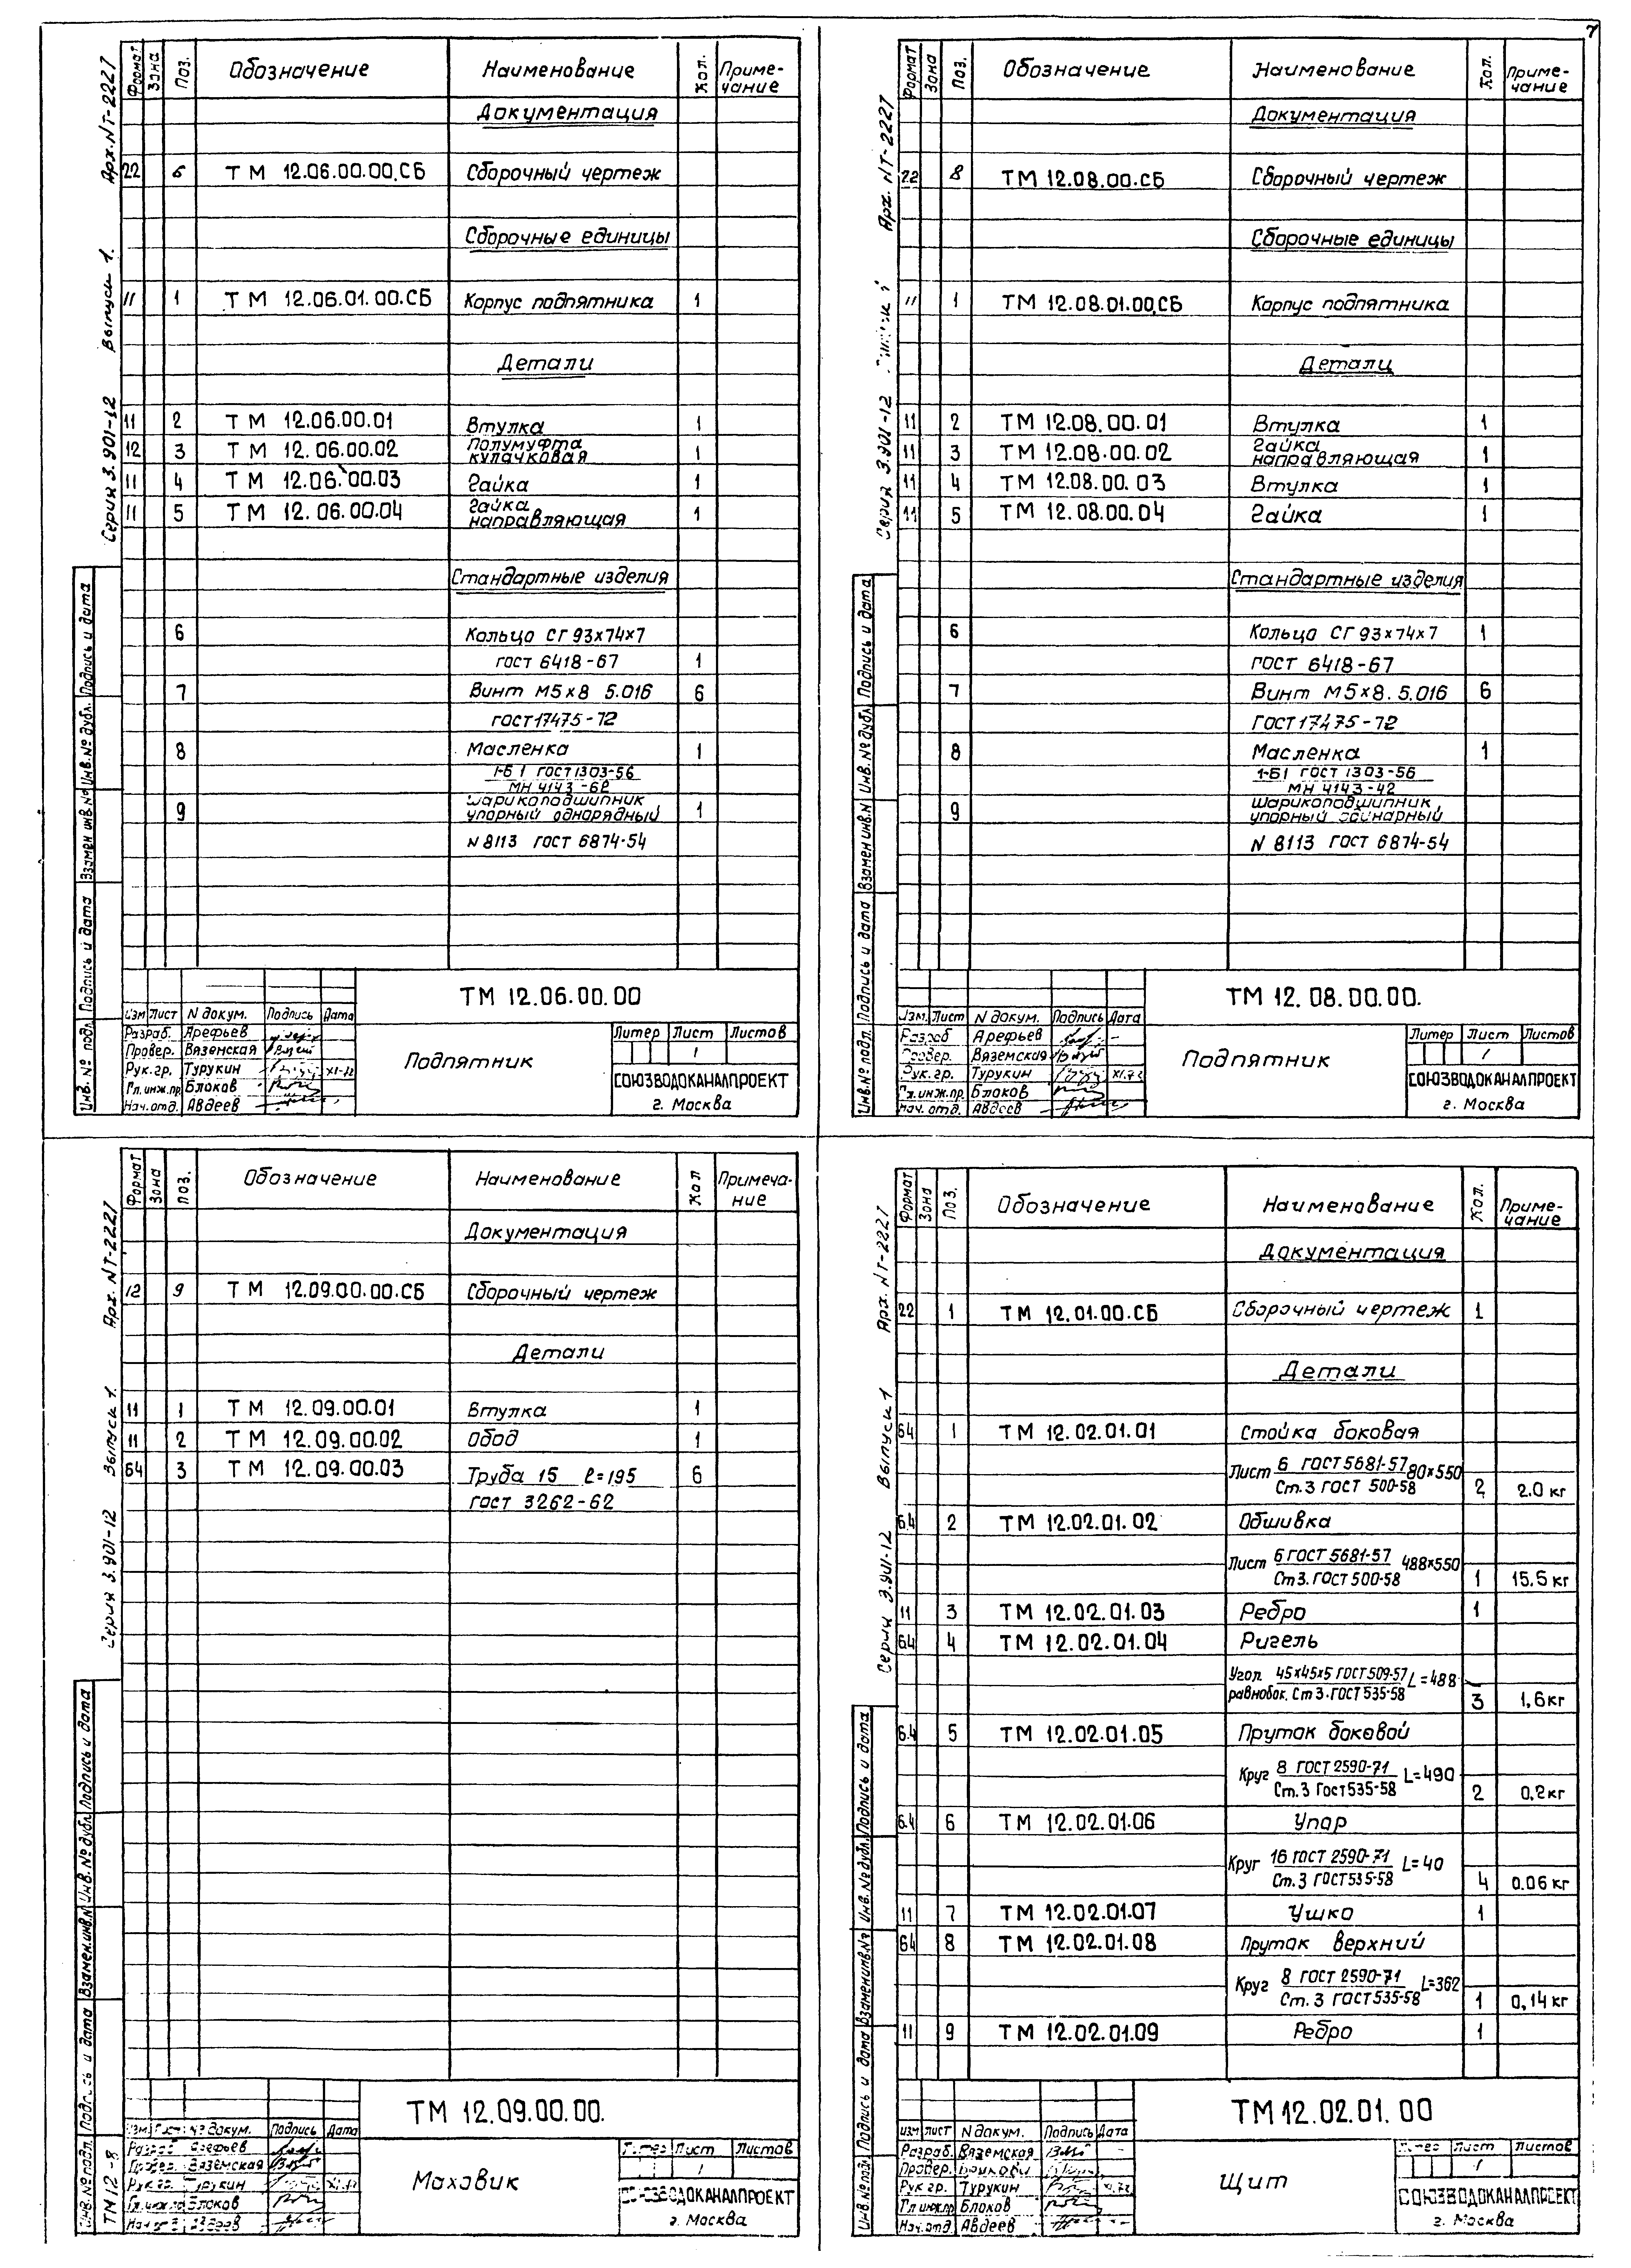 7
Формат Зона Поз. Обозначение Наименование Кол. Приме-
чание
Документация
22 6 ТМ 12.06.00.00.СБ Сборочный чертеж
Сборочные единицы
11 1 ТМ 12.06.01.00.СБ Корпус подпятника 1
Детали
11 2 ТМ 12.06.00.01 Втулка 1
12 3 ТМ 12.06.00.02 Полумуфта
кулачковая 1
11 4 ТМ 12.06.00.03 Гайка 1
11 5 ТМ 12.06.00.04 Гайка
направляющая 1
Стандартные изделия
6 Кольцо СГ 93х74х7
ГОСТ 6418-67 1
7 Винт М5х8 5.016 6
ГОСТ 17475-72
8 Масленка 1
1-Б1 ГОСТ 1303-56
МН 4143-62
9 Шарикоподшипник
упорный однорядный 1
N 8113 ГОСТ 6874-54
Серия 3.901-12 Выпуск 1. Арх. NТ-2227
Инв.№ подл. Подпись и дата Взамен инв.№ Инв.№ дубл. Подпись и дата
ТМ 12.06.00.00
Изм Лист N докум. Подпись Дата
Разраб. Арефьев
Провер. Вяземская
Рук.гр. Турукин XI-72
Гл.инж.пр. Блоков
Нач.отд. Авдеев
Подпятник
Литер Лист Листов
1
СОЮЗВОДОКАНАЛПРОЕКТ
г. Москва
Формат Зона Поз. Обозначение Наименование Кол. Приме-
чание
Документация
22 8 ТМ 12.08.00.СБ Сборочный чертеж
Сборочные единицы
11 1 ТМ 12.08.01.00.СБ Корпус подпятника
Детали
11 2 ТМ 12.08.00.01 Втулка 1
11 3 ТМ 12.08.00.02 Гайка
направляющая 1
11 4 ТМ 12.08.00.03 Втулка 1
11 5 ТМ 12.08.00.04 Гайка 1
Стандартные изделия
6 Кольцо СГ 93х74х7 1
ГОСТ 6418-67
7 Винт М5х8.5.016 6
ГОСТ 17475-72
8 Масленка 1
1-Б1 ГОСТ 1303-56
МН 4143-42
9 Шарикоподшипник
упорный одинарный
N 8113 ГОСТ 6874-54
Серия 3.901-12 Арх. NТ-2227
Инв.№ подл. Подпись и дата Взамен инв.N Инв.№ дубл. Подпись и дата
ТМ 12.08.00.00.
Изм. Лист N докум. Подпись Дата
Разраб Арефьев
Провер. Вяземская
Рук.гр. Турукин XI.72
Гл.инж.пр. Блоков
Нач.отд. Авдеев
Подпятник
Литер Лист Листов
1
СОЮЗВОДОКАНАЛПРОЕКТ
г. Москва
Формат Зона Поз. Обозначение Наименование Кол Примеча-
ние
Документация
12 9 ТМ 12.09.00.00.СБ Сборочный чертеж
Детали
11 1 ТМ 12.09.00.01 Втулка 1
11 2 ТМ 12.09.00.02 Обод 1
64 3 ТМ 12.09.00.03 Труба 15 ℓ=195 6
ГОСТ 3262-62
Серия 3.901-12 Выпуск 1. Арх. NТ-2227
Инв.№ подл. Подпись и дата Взамен.инв.N Инв.№ дубл. Подпись и дата
ТМ 12-8
ТМ 12.09.00.00.
Изм Лист № докум. Подпись Дата
Разраб Арефьев
Провер. Вяземская
Рук гр. Турукин XI.72
Гл.инж.пр Блоков
Нач.отд Авдеев
Маховик
Литер Лист Листов
1
СОЮЗВОДОКАНАЛПРОЕКТ
г. Москва
Формат Зона Поз. Обозначение Наименование Кол. Приме-
чание
Документация
22 1 ТМ 12.01.00.СБ Сборочный чертеж 1
Детали
64 1 ТМ 12.02.01.01 Стойка боковая
Лист 6 ГОСТ 5681-57 80х550
Ст.3 ГОСТ 500-58 2 2.0 кг
64 2 ТМ 12.02.01.02 Обшивка
Лист 6 ГОСТ 5681-57 488х550
Ст3. ГОСТ 500-58 1 15.5 кг
11 3 ТМ 12.02.01.03 Ребро 1
64 4 ТМ 12.02.01.04 Ригель
Угол 45х45х5 ГОСТ 509-57 L=488
равнобок. Ст3.ГОСТ 535-58 3 1,6 кг
64 5 ТМ 12.02.01.05 Пруток боковой
Круг 8 ГОСТ 2590-71 L=490
Ст.3 Гост 535-58 2 0,2 кг
64 6 ТМ 12.02.01.06 Упор
Круг 16 ГОСТ 2590-71 L=40
Ст.3 ГОСТ 535-58 4 0.06 кг
11 7 ТМ 12.02.01.07 Ушко 1
64 8 ТМ 12.02.01.08 Пруток верхний
Круг 8 ГОСТ 2590-71 L=362
Ст.3 ГОСТ 535-58 1 0,14 кг
11 9 ТМ 12.02.01.09 Ребро 1
Серия 3.901-12 Выпуск 1 Арх. NТ-2227
Инв.№ подл. Подпись и дата Взамен инв.№ Инв.№ дубл. Подпись и дата
ТМ 12.02.01.00
изм лист N докум. Подпись Дата
Разраб. Вяземская
Провер.
Рук гр. Турукин XI.72
Гл инж.пр. Блоков
Нач.отд. Авдеев
Щит
Литер Лист Листов
1
СОЮЗВОДОКАНАЛПРОЕКТ
г. Москва